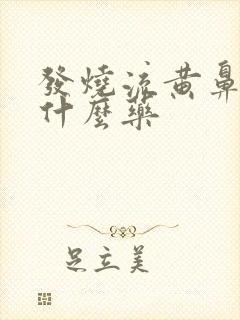 發燒流黃鼻
什麼藥
足立美